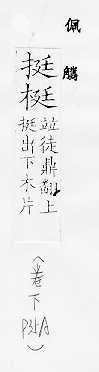 佩觿
挺梃
竝徒鼎翻上
挺出下木片
(卷下
P31A)